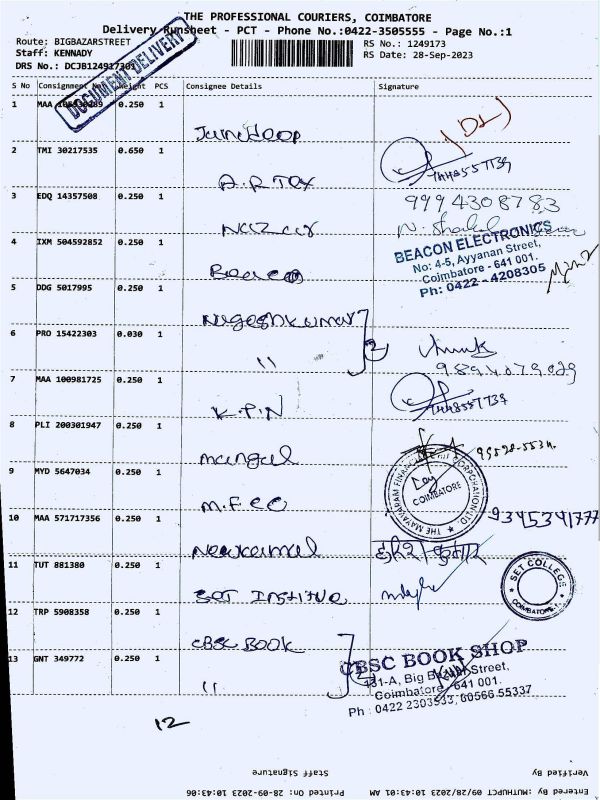 THE PROFESSIONAL COURIERS, COIMBATORE
Delivery Runsheet - PCT - Phone No.:0422-3505555 - Page No.:1
Route: BIGBAZARSTREET
RS No.: 1249173
Staff: KENNADY
RS Date: 28-Sep-2023
DRS No.: DCJB124917301
DOCUMENT DELIVERY
S No Consignment No Weight PCS Consignee Details Signature
1 MAA 0.250 1
(DL)
2 TMI 30217535 0.650 1
A.R Tex
3 EDQ 14357508 0.250 1
9994308783
4 IXM 504592852 0.250 1
BEACON ELECTRONICS
No: 4-5, Ayyanan Street,
Coimbatore - 641 001.
Ph: 0422 - 4208305
5 DDG 5017995 0.250 1
Nageshkumar
6 PRO 15422303 0.030 1
" 2
7 MAA 100981725 0.250 1
K.P.N
8 PLI 200301947 0.250 1
mangal
9 MYD 5647034 0.250 1
THE MAYAVARAM FINANCIAL CORPORATION LTD.
COIMBATORE
M.F.CO
9345341777
10 MAA 571717356 0.250 1
Newkamal
हरिश कुमार
11 TUT 881380 0.250 1
SET COLLEGE
COIMBATORE-1.
SET INSTITUE
12 TRP 5908358 0.250 1
CBSC BOOK
13 GNT 349772 0.250 1
" 2
CBSC BOOK SHOP
131-A, Big Bazaar Street,
Coimbatore - 641 001.
Ph : 0422 2303533, 80566 55337
12
Staff Signature
Verified By
Printed On: 28-09-2023 10:43:06
Entered By :MUTHUPCT 09/28/2023 10:43:01 AM